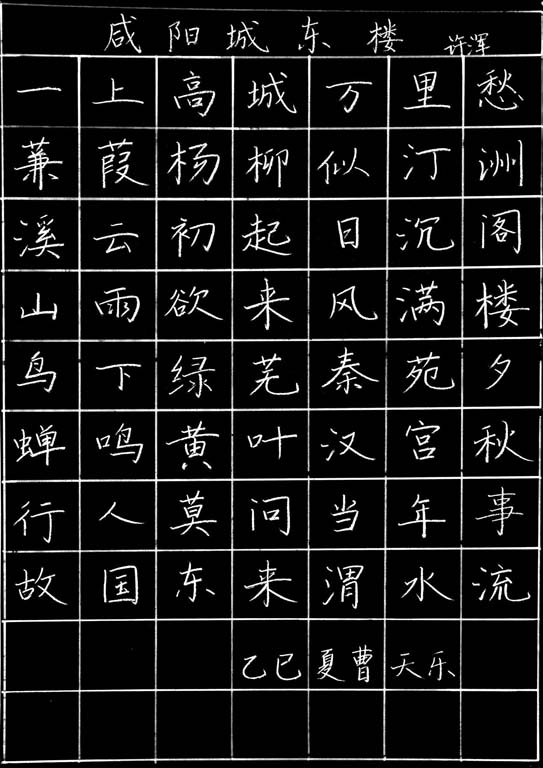 咸阳城东楼 许浑
一上高城万里愁
蒹葭杨柳似汀洲
溪云初起日沉阁
山雨欲来风满楼
鸟下绿芜秦苑夕
蝉鸣黄叶汉宫秋
行人莫问当年事
故国东来渭水流
乙巳夏曹天乐